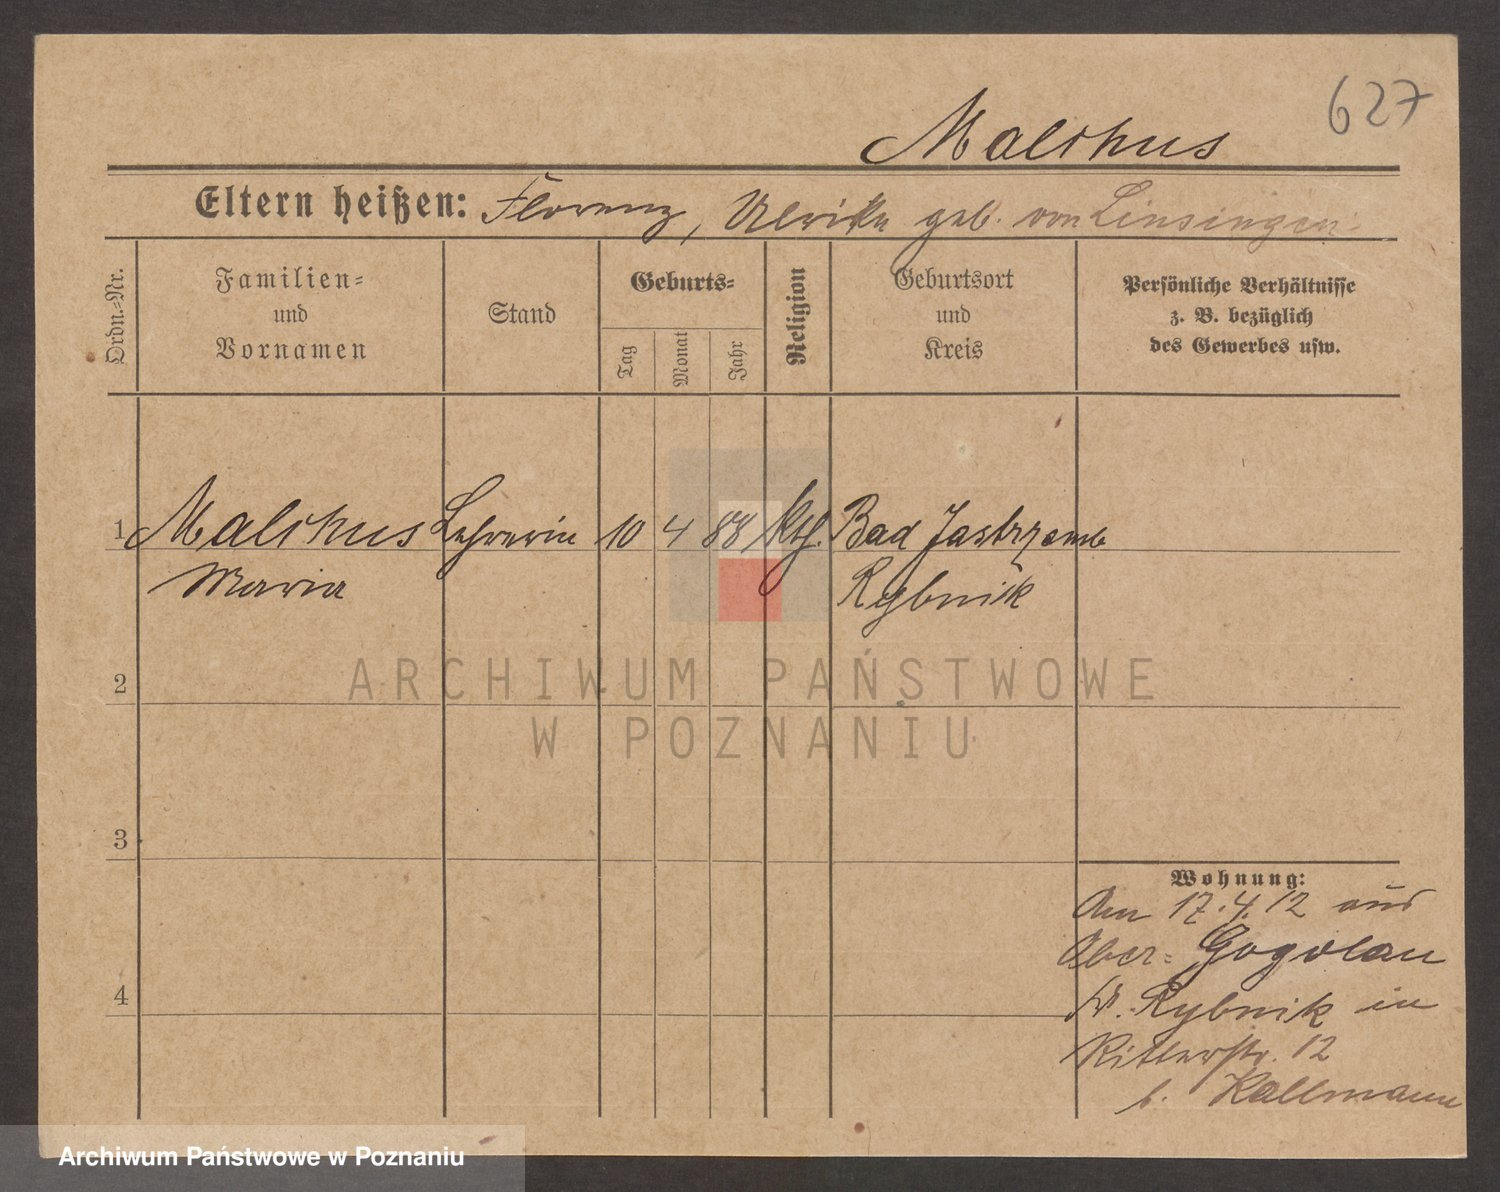 627
Malchus
Eltern heißen: Florenz, Ulrike geb. von Linsingen.
Ordn.-Nr.
Familien-
und
Vornamen
Stand
Geburts-
Tag
Monat
Jahr
Religion
Geburtsort
und
Kreis
Persönliche Verhältnisse
z. B. bezüglich
des Gewerbes usw.
1 Malchus Lehrerin 10 4 88 kth. Bad Jastrzemb
Maria Rybnik
ARCHIWUM PAŃSTWOWE
W POZNANIU
2
3
4
Wohnung:
Am 17.4.12 aus
Ober- Gogolau
Kr. Rybnik in
Ritterstr. 12
b. Kallmann
Archiwum Państwowe w Poznaniu